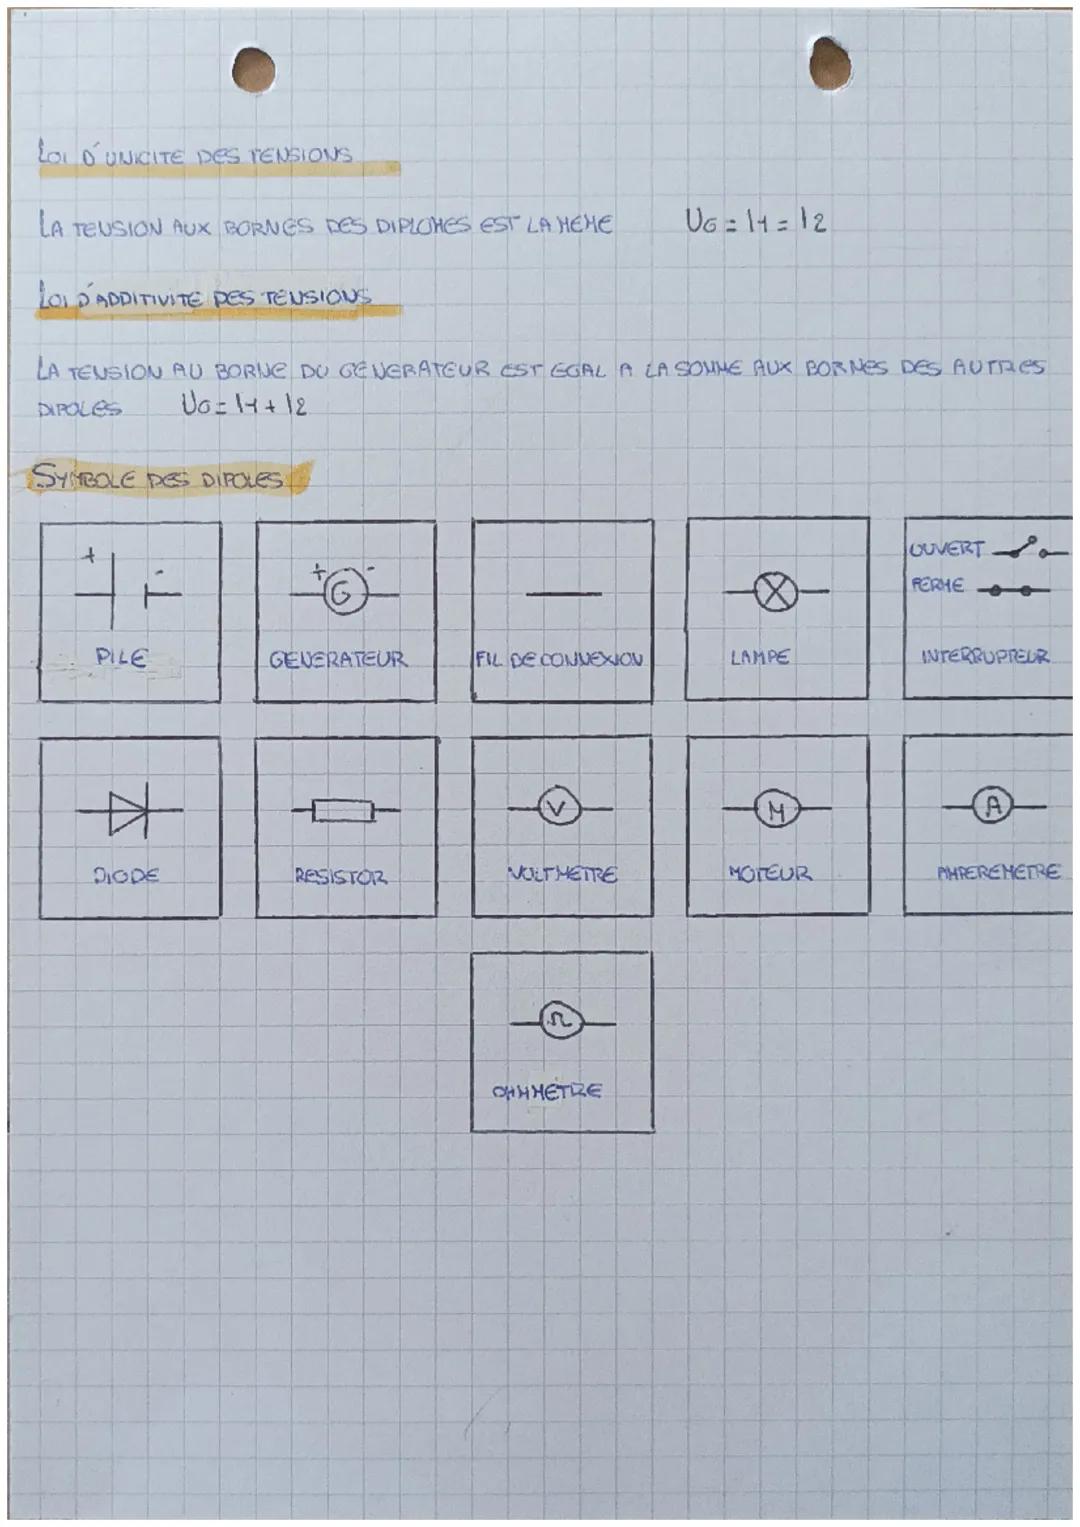 LOI D'UNICITE DES TENSIONS
LA TENSION AUX BORNES DES DIPLOMES EST LA MEME UG = I1 = I2
LOI D'ADDITIVITE DES TENSIONS
LA TENSION AU BORNE DU GENERATEUR EST EGAL A LA SOMME AUX BORNES DES AUTRES
DIPOLES UG = I1 + I2
SYMBOLE DES DIPOLES
+ -
PILE
+ G -
GENERATEUR
FIL DE CONNEXION
LAMPE
OUVERT
FERME
INTERRUPTEUR
DIODE
RESISTOR
V
VOLTMETRE
M
MOTEUR
A
AMPEREMETRE
Ω
OHMMETRE